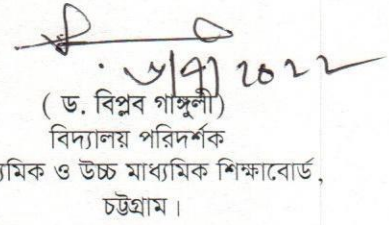 ২০২২
( ড. বিপ্লব গাঙ্গুলী)
বিদ্যালয় পরিদর্শক
ধ্যমিক ও উচ্চ মাধ্যমিক শিক্ষাবোর্ড,
চট্টগ্রাম।